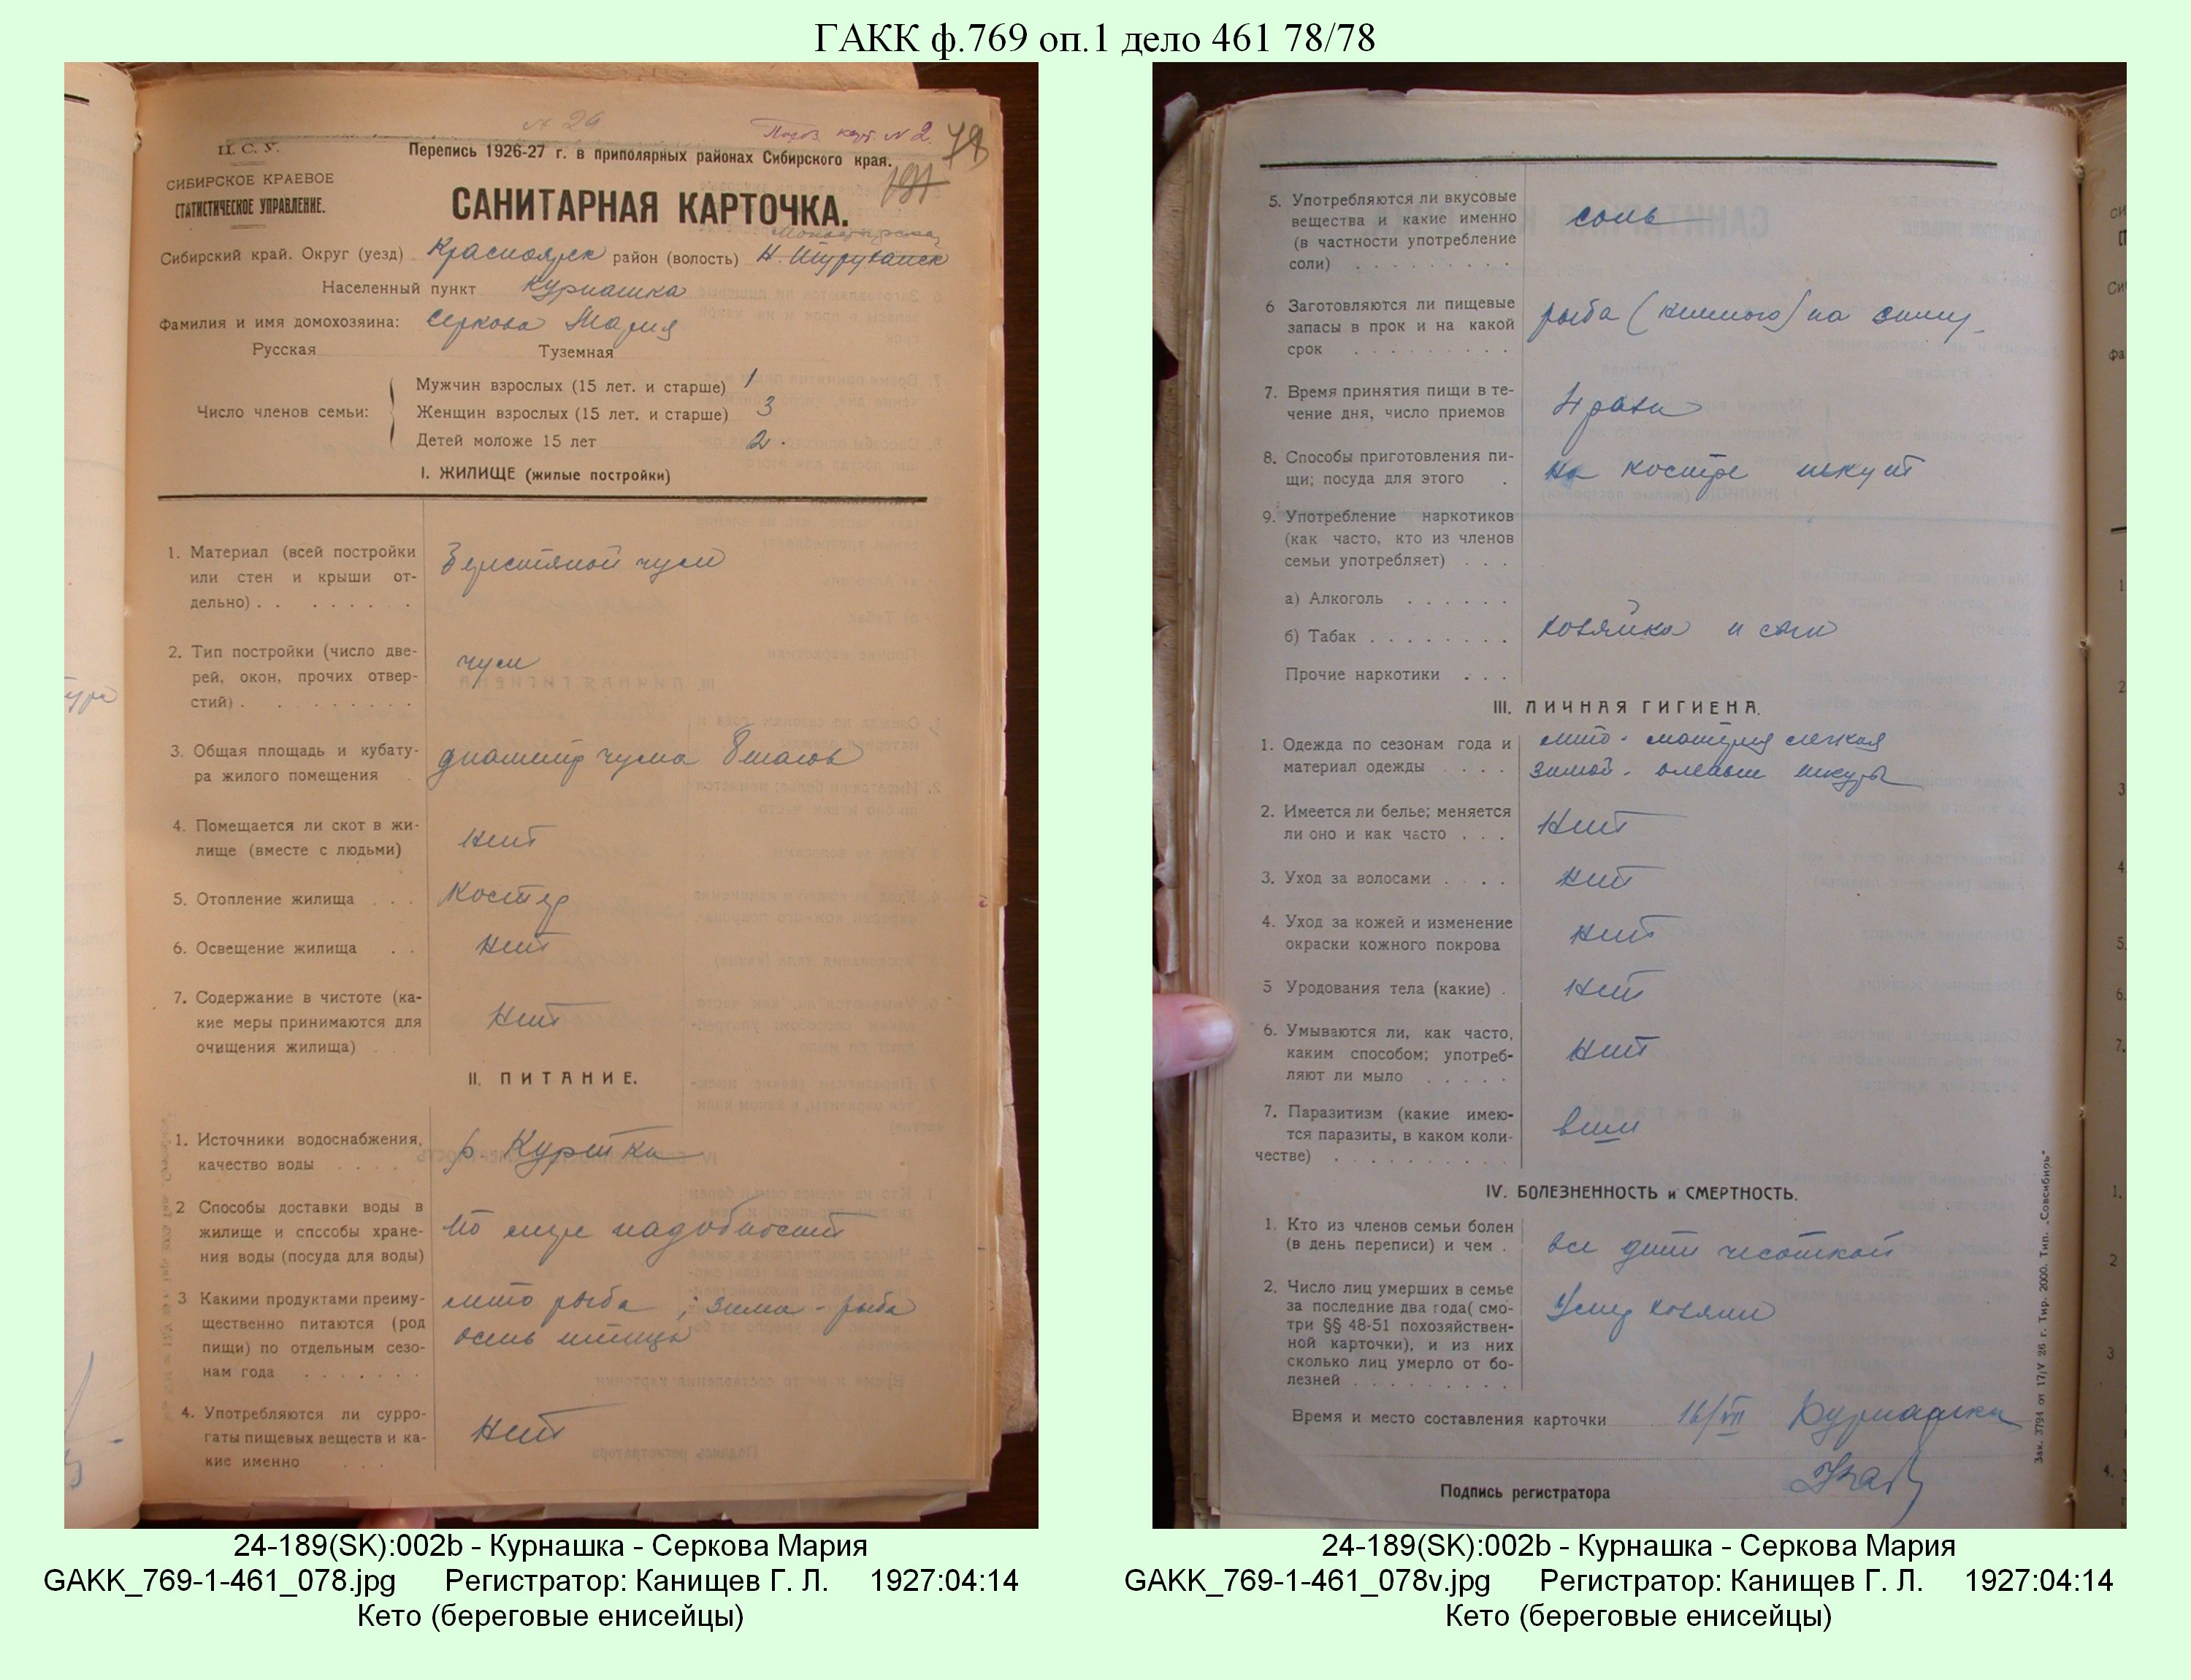 ГАКК ф.769 оп.1 дело 461 78/78
№ 29
Похоз. карт. № 2.
78
Ц. С. У.
Перепись 1926-27 г. в приполярных районах Сибирского края.
СИБИРСКОЕ КРАЕВОЕ
СТАТИСТИЧЕСКОЕ УПРАВЛЕНИЕ.
САНИТАРНАЯ КАРТОЧКА.
Сибирский край. Округ (уезд) Красноярск район (волость) Н. Туруханск
Населенный пункт Курнашка
Фамилия и имя домохозяина: Серкова Мария
Русская Туземная
Число членов семьи:
Мужчин взрослых (15 лет. и старше) 1
Женщин взрослых (15 лет. и старше) 3
Детей моложе 15 лет 2.
I. ЖИЛИЩЕ (жилые постройки)
1. Материал (всей постройки
или стен и крыши от-
дельно) . . . . . . . .
Берстяной чум
2. Тип постройки (число две-
рей, окон, прочих отвер-
стий) . . . . . . . . .
чум
3. Общая площадь и кубату-
ра жилого помещения
диаметр чума 8 шагов
4. Помещается ли скот в жи-
лище (вместе с людьми)
Нет
5. Отопление жилища . . .
Костер
6. Освещение жилища . .
Нет
7. Содержание в чистоте (ка-
кие меры принимаются для
очищения жилища) .
Нет
II. ПИТАНИЕ.
1. Источники водоснабжения,
качество воды . . . .
р Курейка
2 Способы доставки воды в
жилище и способы хране-
ния воды (посуда для воды)
по мере надобности
3 Какими продуктами преиму-
щественно питаются (род
пищи) по отдельным сезо-
нам года . . . . . . .
лето рыба ; зима - рыба
осень птицы
4. Употребляются ли сурро-
гаты пищевых веществ и ка-
кие именно . . .
Нет
5. Употребляются ли вкусовые
вещества и какие именно
(в частности употребление
соли) . . . . . . . . .
соль
6 Заготовляются ли пищевые
запасы в прок и на какой
срок . . . . . . . . .
рыба ( ) на зиму.
7. Время принятия пищи в те-
чение дня, число приемов
4 раза
8. Способы приготовления пи-
щи; посуда для этого .
На костре пекут
9. Употребление наркотиков
(как часто, кто из членов
семьи употребляет) . . .
а) Алкоголь . . . . . .
б) Табак . . . . . . . .
хозяйка и
Прочие наркотики . . .
III. ЛИЧНАЯ ГИГИЕНА.
1. Одежда по сезонам года и
материал одежды . . . .
лето - материя легкая
зимой - оленьи шкуры
2. Имеется ли белье; меняется
ли оно и как часто . . .
Нет
3. Уход за волосами . . . .
Нет
4. Уход за кожей и изменение
окраски кожного покрова
Нет
5 Уродования тела (какие) .
Нет
6. Умываются ли, как часто,
каким способом; употреб-
ляют ли мыло . . . . .
Нет
7. Паразитизм (какие имею-
тся паразиты, в каком коли-
честве) . . . . . . . . .
вши
IV. БОЛЕЗНЕННОСТЬ и СМЕРТНОСТЬ.
1. Кто из членов семьи болен
(в день переписи) и чем .
все дети чесоткой
2. Число лиц умерших в семье
за последние два года( смо-
три §§ 48-51 похозяйствен-
ной карточки), и из них
сколько лиц умерло от бо-
лезней . . . . . . . . .
Умер хозяин
Время и место составления карточки 16/VII Курнашка
Подпись регистратора
Зак. 3794 от 17/V 26 г. Тир. 2000. Тип. „Совсибирь"
24-189(SK):002b - Курнашка - Серкова Мария
GAKK_769-1-461_078.jpg Регистратор: Канищев Г. Л. 1927:04:14
Кето (береговые енисейцы)
24-189(SK):002b - Курнашка - Серкова Мария
GAKK_769-1-461_078v.jpg Регистратор: Канищев Г. Л. 1927:04:14
Кето (береговые енисейцы)